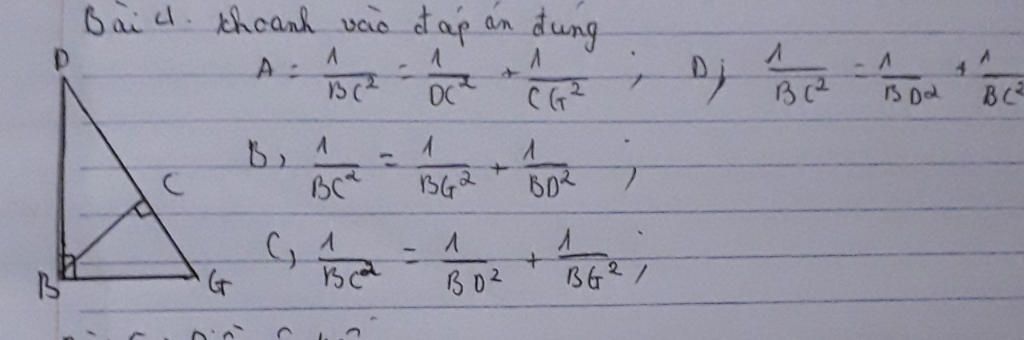 Bài 4. Khoanh vào đáp án đúng
D
A = 1/BC² = 1/DC² + 1/CG² ; D; 1/BC² = 1/BD² + 1/BC²
B, 1/BC² = 1/BG² + 1/BD² ;
C
C, 1/BC² = 1/BD² + 1/BG² ;
B G